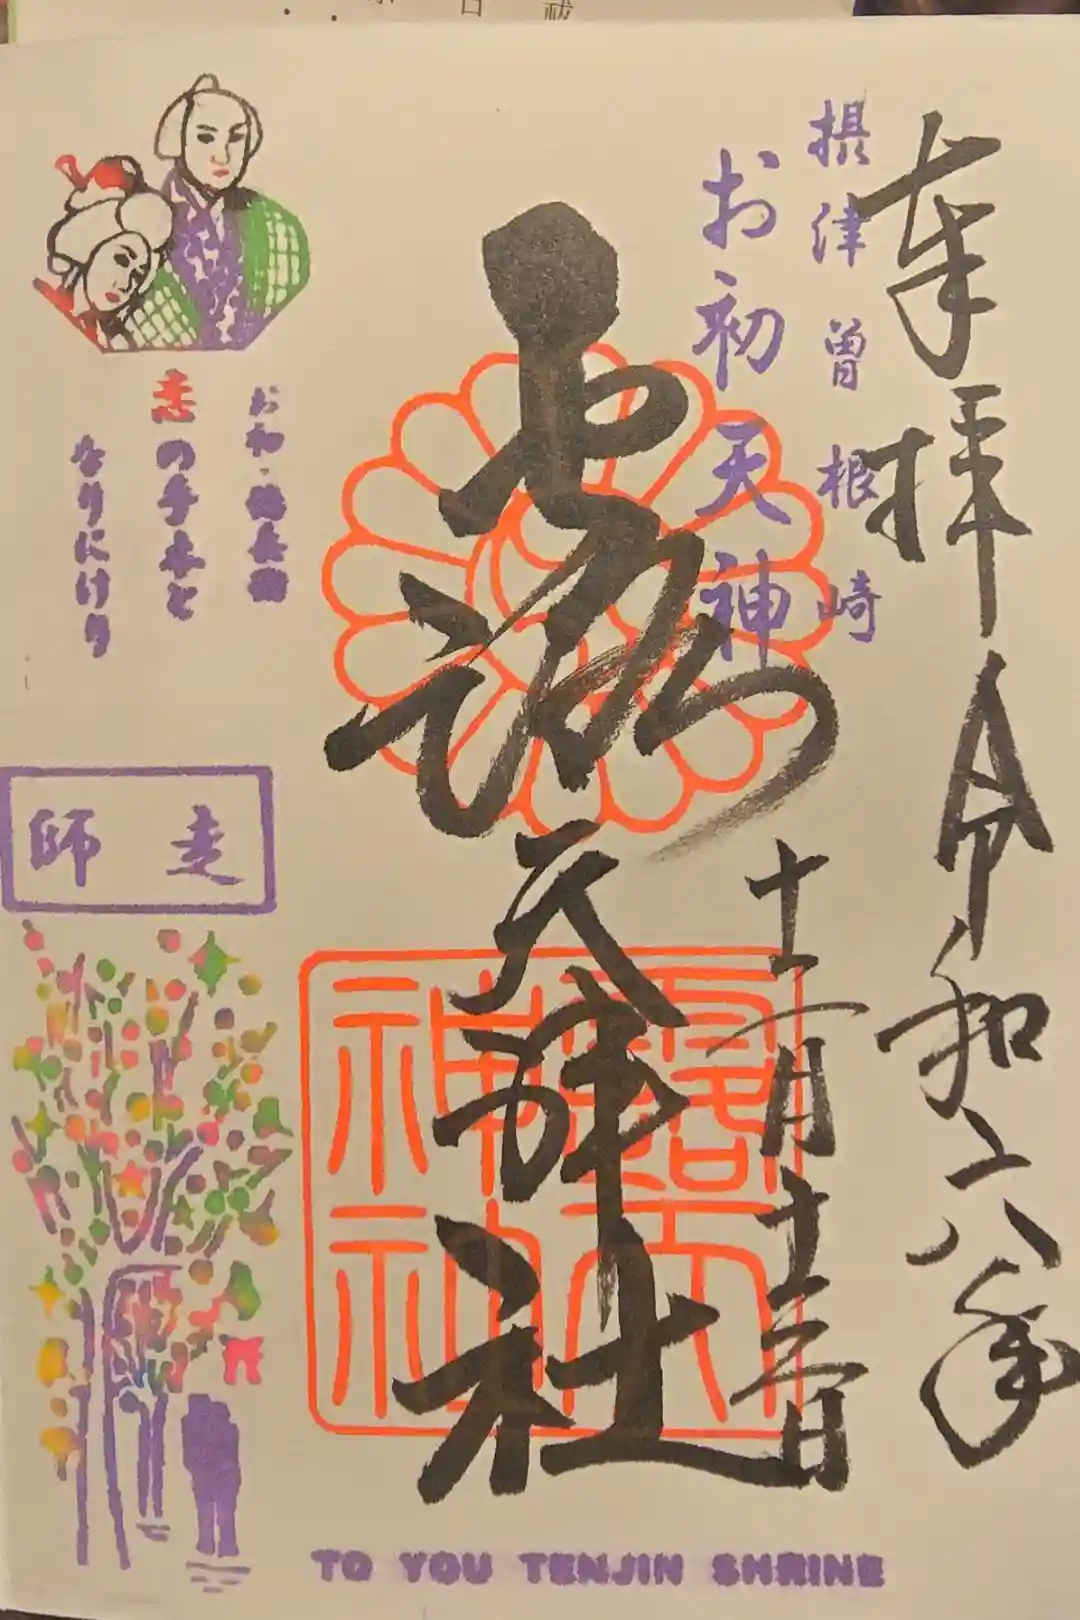 奉拝 令和六年
十二月十三日
摂津曽根崎
お初天神
露天神社
露天
神社
お初・徳兵衛
恋の手本と
なりにけり
師走
TO YOU TENJIN SHRINE